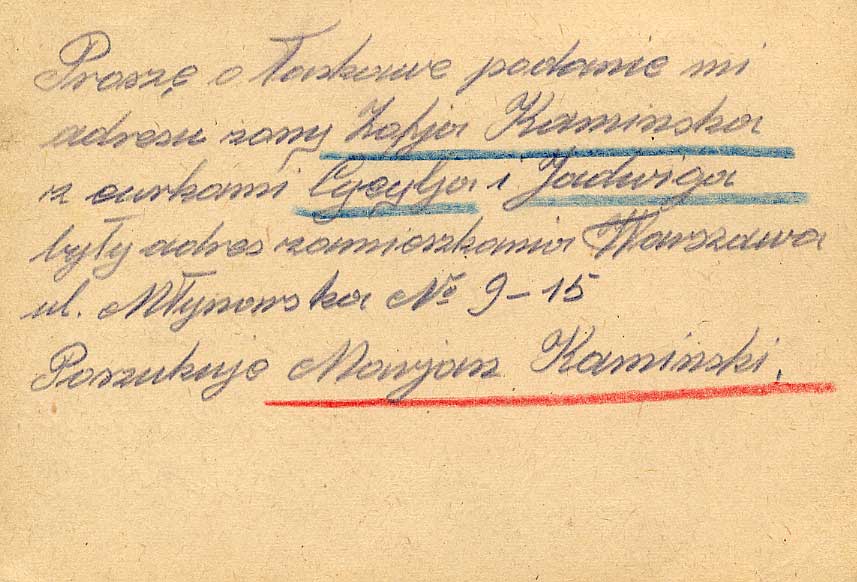 Proszę o łaskawe podanie mi
adresu żony Zofja Kaminska
z curkami Cycylja i Jadwiga
były adres zamieszkania Warszawa
ul. Młynarska № 9-15
Poszukuje Marjan Kaminski.